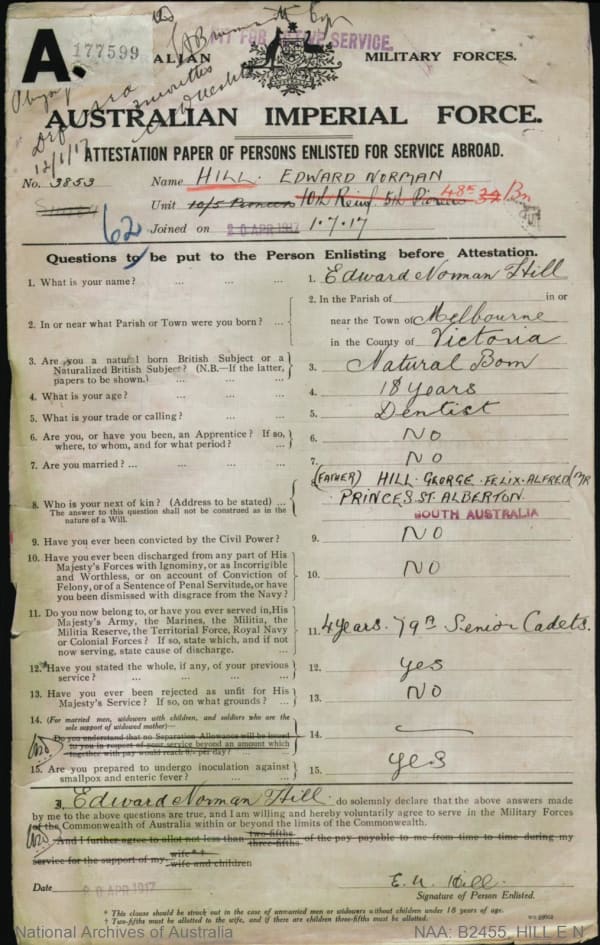 A.
177599
FIT FOR ACTIVE SERVICE.
AUSTRALIAN MILITARY FORCES.
AUSTRALIAN IMPERIAL FORCE.
ATTESTATION PAPER OF PERSONS ENLISTED FOR SERVICE ABROAD.
No. 3853 Name HILL. EDWARD NORMAN
Unit 10/5 Pioneers 10th Reinf 5th Pioneer 48th Bn
62 Joined on 20 APR 1917 1.7.17
Questions to be put to the Person Enlisting before Attestation.
1. What is your name? ... ... ... 1. Edward Norman Hill
2. In or near what Parish or Town were you born? ... 2. In the Parish of in or
near the Town of Melbourne
in the County of Victoria
3. Are you a natural born British Subject or a
Naturalized British Subject? (N.B.—If the latter,
papers to be shown.) ... ... 3. Natural Born
4. What is your age? ... ... ... 4. 18 years
5. What is your trade or calling? ... ... 5. Dentist
6. Are you, or have you been, an Apprentice? If so,
where, to whom, and for what period? ... 6. NO
7. Are you married? ... ... ... ... 7. NO
8. Who is your next of kin? (Address to be stated) ...
The answer to this question shall not be construed as in the
nature of a Will.
8. (FATHER) HILL. GEORGE. FELIX. ALFRED
PRINCES ST. ALBERTON
SOUTH AUSTRALIA
9. Have you ever been convicted by the Civil Power? 9. NO
10. Have you ever been discharged from any part of His
Majesty's Forces with Ignominy, or as Incorrigible
and Worthless, or on account of Conviction of
Felony, or of a Sentence of Penal Servitude, or have
you been dismissed with disgrace from the Navy? 10. NO
11. Do you now belong to, or have you ever served in, His
Majesty's Army, the Marines, the Militia, the
Militia Reserve, the Territorial Force, Royal Navy
or Colonial Forces? If so, state which, and if not
now serving, state cause of discharge. ... 11. 4 years. 79th Senior Cadets.
12.* Have you stated the whole, if any, of your previous
service? ... ... ... ... 12. yes
13. Have you ever been rejected as unfit for His
Majesty's Service? If so, on what grounds? ... 13. NO
14. (For married men, widowers with children, and soldiers who are the
sole support of widowed mother)—
Do you understand that no Separation Allowance will be issued
to you in respect of your service beyond an amount which
together with pay would reach 8/- per day? 14.
15. Are you prepared to undergo inoculation against
smallpox and enteric fever? ... ... 15. yes
I, Edward Norman Hill. do solemnly declare that the above answers made
by me to the above questions are true, and I am willing and hereby voluntarily agree to serve in the Military Forces
of the Commonwealth of Australia within or beyond the limits of the Commonwealth.
And I further agree to allot not less than two-fifths three-fifths of the pay payable to me from time to time during my
service for the support of my wife wife and children
Date 20 APR 1917 E. N. Hill.
Signature of Person Enlisted.
* This clause should be struck out in the case of unmarried men or widowers without children under 18 years of age.
† Two-fifths must be allotted to the wife, and if there are children three-fifths must be allotted.
National Archives of Australia NAA: B2455, HILL E N